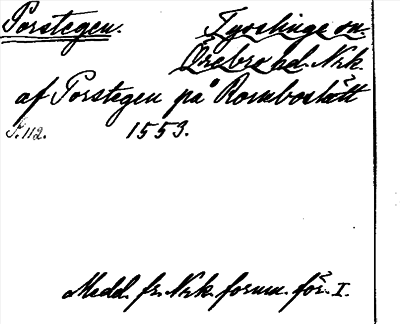 Porstegen. Tysslinge sn.
Örebro hd. Nrk.
af Porstegen på Rombostätt
S. 112. 1553.
Medd. fr. Nrk. fornm. för. I.